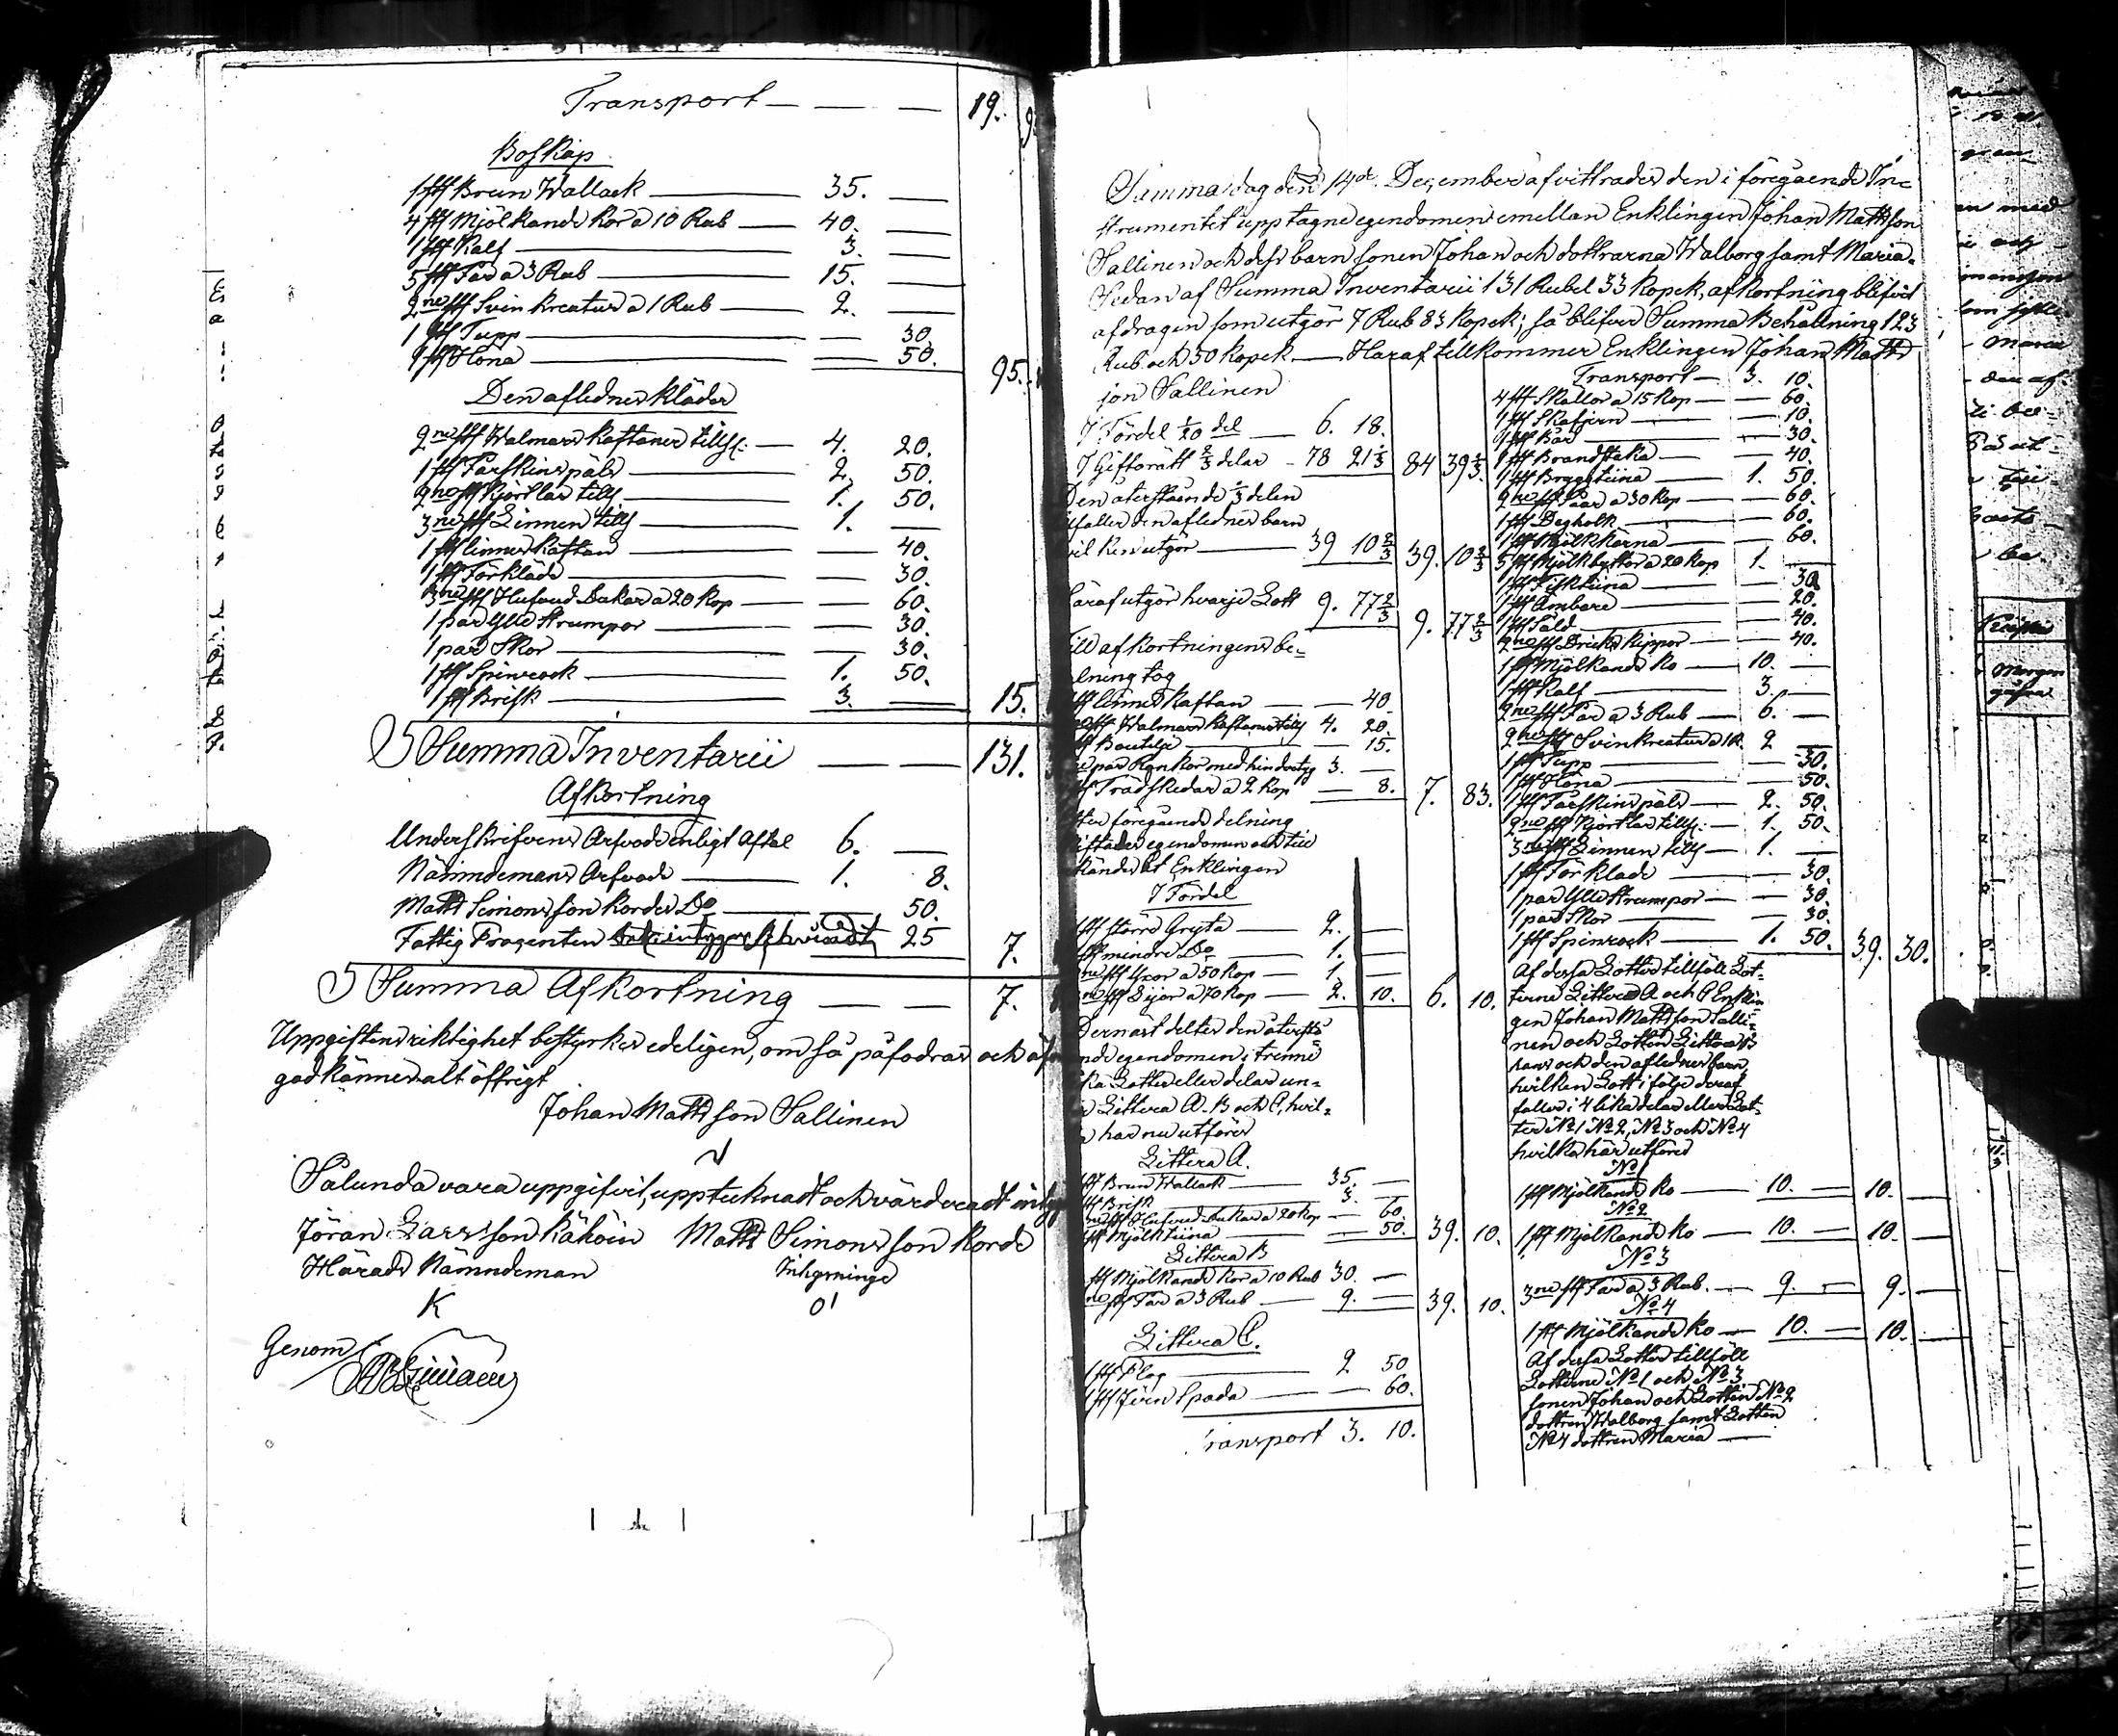 Transport — — — 19. 9
Boskap
1 st Brun Wallack — 35. —
4 st Mjölkande Kor a 10 Rub — 40. —
1 st Kalf — 3. —
5 st Får a 3 Rub — 15. —
2ne st Svin Kreatur a 1 Rub — 2. —
1 st Tupp — — 30.
2 st Höna — — 50. 95.
Den aflednes kläder
2ne st Walmars Kaftaner tills: — 4. 20.
1 st Fårskins päls — 2. 50.
2ne st Kjortlar tills — 1. 50.
3ne st Linnen tills — 1. —
1 st linne Kaftan — — 40.
1 st Förkläde — — 30.
3ne st Hufvud Dukar a 20 Kop — — 60.
1 par Ylle Strumpor — — 30.
1 par Skor — — 30.
1 st Spinrock — 1. 50.
1 st Brisk — 3. — 15.
Summa Inventarii — — 131.
Afkortning
Underskrifvens Arfvode enligt Aftal 6. —
Nämndemans Arfvode — 1. 8.
Matts Simonsson Kordes Do — — 50.
Fattig Procenten 25 7.
Summa Afkortning — — 7.
Uppgiftens riktighet bestyrkes edeligen, om så påfodras och
godkännes alt öffrigt
Johan Mattsson Sallinen
Sålunda vara uppgifvit, upptecknadt och värderadt
Jöran Larsson Kähöin Matts Simonsson Korde
Härads Nämndeman Inhysninge
K
Genom
Samma dag den 14de December afvittrades den i föregående In=
strumentet upptagne egendomen emellan Enklingen Johan Mattsson
Sallinen och dess barn sonen Johan och dottrarna Walborg samt Maria.
Sedan af Summa Inventarii 131 Rubel 33 Kopek, afkortning blifvit
afdragen som utgör 7 Rub 83 Kopek; så blifver Summa Behållning 123
Rub och 50 Kopek — Häraf tillkommer Enklingen Johan Matts
son Sallinen
I Fördel 1/20 del — 6. 18.
I Giftorätt 2/3 delar — 78 21 1/3 84 39 1/3
Den återstående 1/3 delen
tillfaller den aflednes barn
hvilken utgör — 39 10 2/3 39. 10 2/3
Häraf utgör hvarje Lott 9. 77 2/3 9. 77 2/3
Till afkortningens be=
talning tog
st linne Kaftan — — 40
st Walmars Kaftaner tills 4. 20.
st Boutelje — — 15.
par Rankor med hinderstyg 3. —
st Trädskedar a 2 Kop — 8. 7. 83.
föregående delning
skiftades egendomen och
kändes åt Enklingen
I Fördel
st större Gryta — 2. —
st mindre Do — 1. —
ne st Yxor a 50 Kop — 1. —
ne st Lijor a 70 Kop — 2. 10. 6. 10.
Dernäst deltes den återstå
ende egendomen i trenne
lika Lotter eller delar un=
der Littera A. B och C, hvil=
ka här nu utföres
Littera A.
st Brun Wallack — 35. —
st Brisk — 3. —
ne st Hufvud Dukar a 20 Kop — 60.
st Mjölktiina — — 50. 39. 10.
Littera B
st Mjölkande Kor a 10 Rub 30. —
ne st Får a 3 Rub — 9. — 39. 10.
Littera C.
1 st Plog — 2 50
1 st Jern Spada — — 60.
Transport 3. 10.
Transport — 3. 10.
4 st Skållor a 15 Kop — — 60.
1 st Skafjern — — 10.
— 30.
1 st Brandstaka — — 40.
1 st Bryggtiina — 1. 50.
2ne st Såar a 30 Kop — — 60.
1 st Degholk — — 60.
1 st Mjölkkärna — — 60.
5 st Mjölkbyttor a 20 Kop 1. —
1 st Fisktiina — — 30.
1 st Ambare — — 20.
1 st Såld — — 40.
2ne st Dricks kippor — — 40.
1 st Mjölkande Ko — 10. —
1 st Kalf — 3. —
2ne st Får a 3 Rub — 6. —
2ne st Svinkreatur a 1 R. 2 —
1 st Tupp — — 30.
1 st Höna — — 50.
1 st Fårskins päls — 2. 50.
2ne st Kjortlar tills: — 1. 50.
3ne st Linnen tills — 1. —
1 st Förkläde — — 30.
1 par Ylle Strumpor — — 30.
1 par Skor — — 30.
1 st Spinrock — 1. 50. 39. 30.
Af dessa Lotter tillföll Lot=
terne Littera A och C Enklin
gen Johan Mattsson Salli=
nen och Lotten Littera B
hans och den aflednes barn,
hvilken Lott i följe deraf
faller i 4 lika delar eller Lot=
ter No 1 No 2, No 3 och No 4
hvilka här utföres
No 1
1 st Mjölkande Ko — 10. — 10. —
No 2
1 st Mjölkande Ko — 10. — 10. —
No 3
3ne st Får a 3 Rub. — 9. — 9. —
No 4
1 st Mjölkande Ko — 10. — 10. —
Af dessa Lotter tillföll
Lotterne No 1 och No 3
sonen Johan och Lotten No 2
dottren Walborg samt Lotten
No 4 dottren Maria —